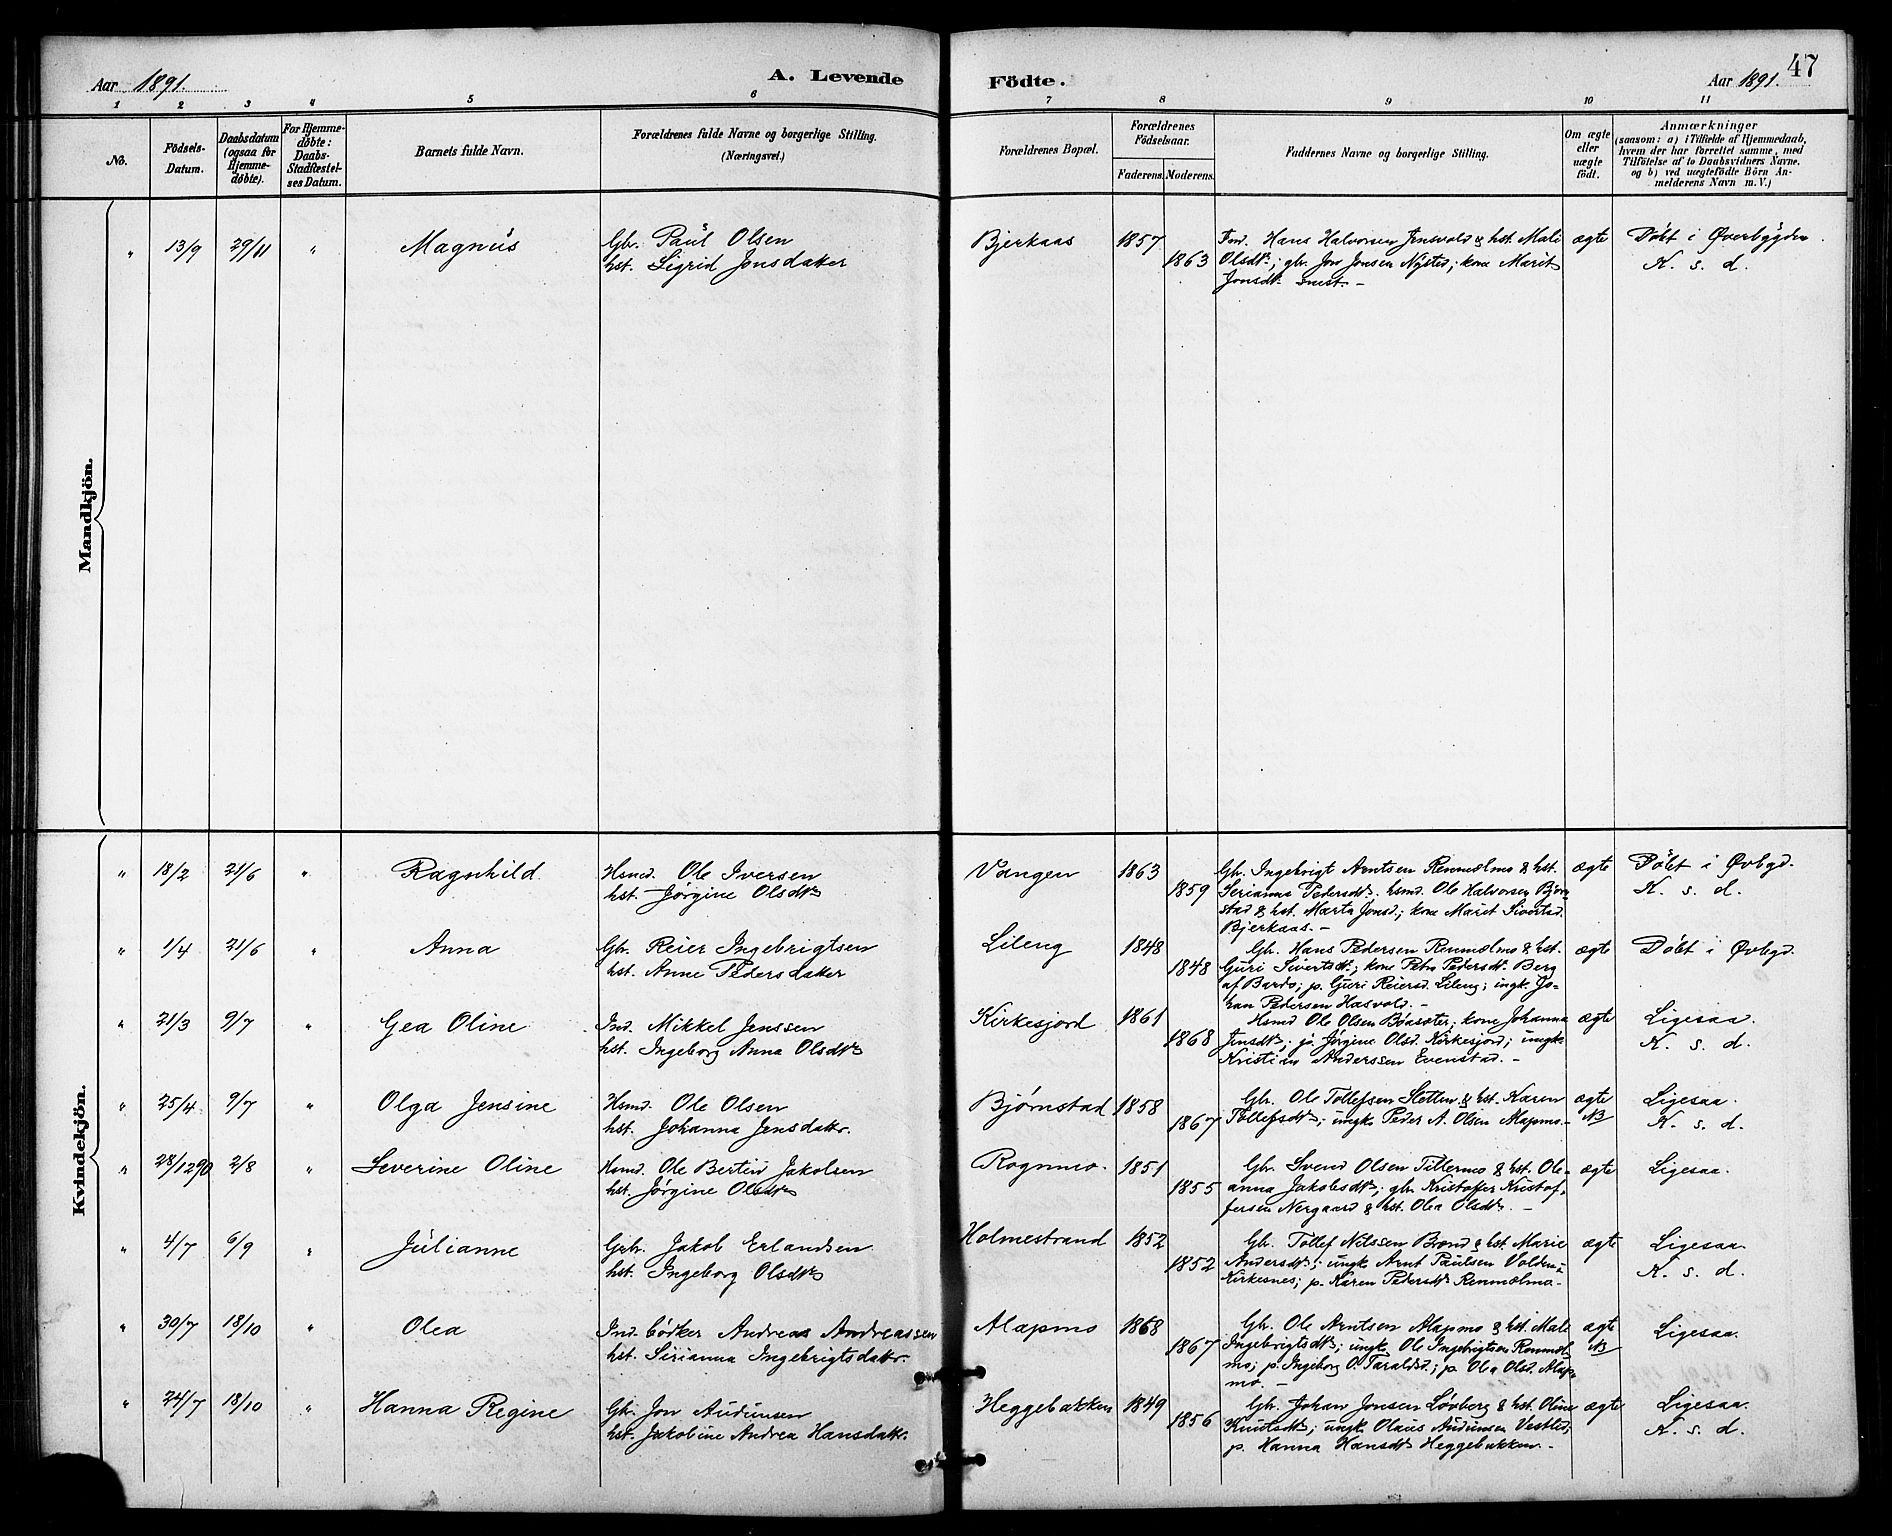 Aar 1891.
A. Levende Födte.
Aar 1891.
47
1 2 3 4 5 6 7 8 9 10 11
No.
Födsels-
Datum.
Daabsdatum
(ogsaa for
Hjemme-
döbte).
For Hjemme-
döbte:
Daabs-
Stadfæstel-
ses Datum.
Barnets fulde Navn.
Forældrenes fulde Navne og borgerlige Stilling.
(Næringsvei.)
Forældrenes Bopæl.
Forældrenes
Födselsaar.
Faderens. Moderens.
Faddernes Navne og borgerlige Stilling.
Om ægte
eller
uægte
födt.
Anmærkninger
(saasom: a) i Tilfælde af Hjemmedaab,
hvem der har forrettet samme, med
Tilföielse af to Daabsvidners Navne,
og b) ved uægtefödte Börn An-
melderens Navn m. V.)
Mandkjön.
" 13/9 29/11 " Magnus
Gbr. Paul Olsen
hst. Sigrid Jonsdatter
Bjerkaas 1857
1863
Hans Halvorsen & hst. Mali
Olsdtr; gbr. Jon Jonsen Nysted; kone Marit
Jonsdtr.
ægte
Døbt i Øverbygden.
K. s. d.
Kvindekjön.
" 18/2 21/6 " Ragnhild
Hsmd. Ole Iversen
hst. Jørgine Olsdtr
Vangen 1863
1859
Gbr. Ingebrigt Arntsen Renmælmo & hst.
Serianna Pedersdtr. hsmd. Ole Halvorsen Bjørn-
stad & hst. Marta Jonsd; kone Marit Sivertsd.
Bjerkaas. –
ægte
Døbt i Øvbgd.
K. s. d.
" 1/4 21/6 " Anna
Gbr. Reier Ingebrigtsen
hst. Anne Pedersdatter
Lileng 1848
1848
Gbr. Hans Pedersen Renmælmo & hst.
Guri Sivertsdtr; kone Petra Pedersdtr Berg
af Bardo; p. Guri Reiersd. Lileng; ungk. Jo-
han Pedersen Hasvold. –
ægte
Døbt i Øvbgd.
" 21/3 9/7 " Gea Oline
Ind. Mikkel Jenssen
hst. Ingeborg Anna Olsdtr
Kirkesjord 1861
1868
Hsmd Ole Olsen; kone Johanna
Jensdtr; p. Jørgine Olsd. Kirkesjord; ungk.
Kristian Anderssen Evenstad. –
ægte
Ligesaa.
K. s. d.
" 25/4 9/7 " Olga Jensine
Hsmd. Ole Olsen
hst. Johanna Jensdattr.
Bjørnstad 1858
1867
Gbr. Ole Tollefsen Sletten & hst. Karen
Tollefsdtr; ungk. Peder A. Olsen Alapmo. –
ægte
NB
Ligesaa.
K. s. d.
" 28/12 90 2/8 " Severine Oline
Hsmd. Ole Bertin Jakobsen
hst. Jørgine Olsdtr
Rognmo. 1851
1855
Gbr. Svend Olsen Tillermo & hst. Ole-
anna Jakobsdtr; gbr Kristoffer Kristof-
fersen Nergaard & hst. Olea Olsdtr. –
ægte
Ligesaa.
" 4/7 6/9 " Julianne
Gbr. Jakob Erlandsen
hst. Ingeborg Olsdtr
Holmestrand 1852
1852
Gbr. Tollef Nilssen Brand & hst. Marie
Andersdtr; ungk. Arnt Paulsen Volden-
Kirkesnes; p. Karen Pedersdtr Renmælmo. –
ægte
Ligesaa.
K. s. d.
" 30/7 18/10 " Olea
Ind. bödker Andreas Andreassen
hst. Sirianna Ingebrigtsdattr.
Alapmo 1868
1867
Gbr. Ole Arntsen Alapmo & hst. Mali
Ingebrigtsdtr; ungk. Ole Ingebrigtsen Renmæl-
mo; p. Ingeborg O. Taraldsd.; p. Olea Olsd. Alap-
mo. –
ægte
NB
Ligesaa.
" 24/7 18/10 " Hanna Regine
Gbr. Jon Audunsen
hst. Jakobine Andrea Hansdattr.
Heggebakken 1849
1856
Gbr. Johan Jonsen Løvberg & hst. Oline
Knutsdtr; ungk. Olaus Audunsen Vestlid;
p. Hanna Hansdtr Heggebakken. –
ægte
Ligesaa.
K. s. d.